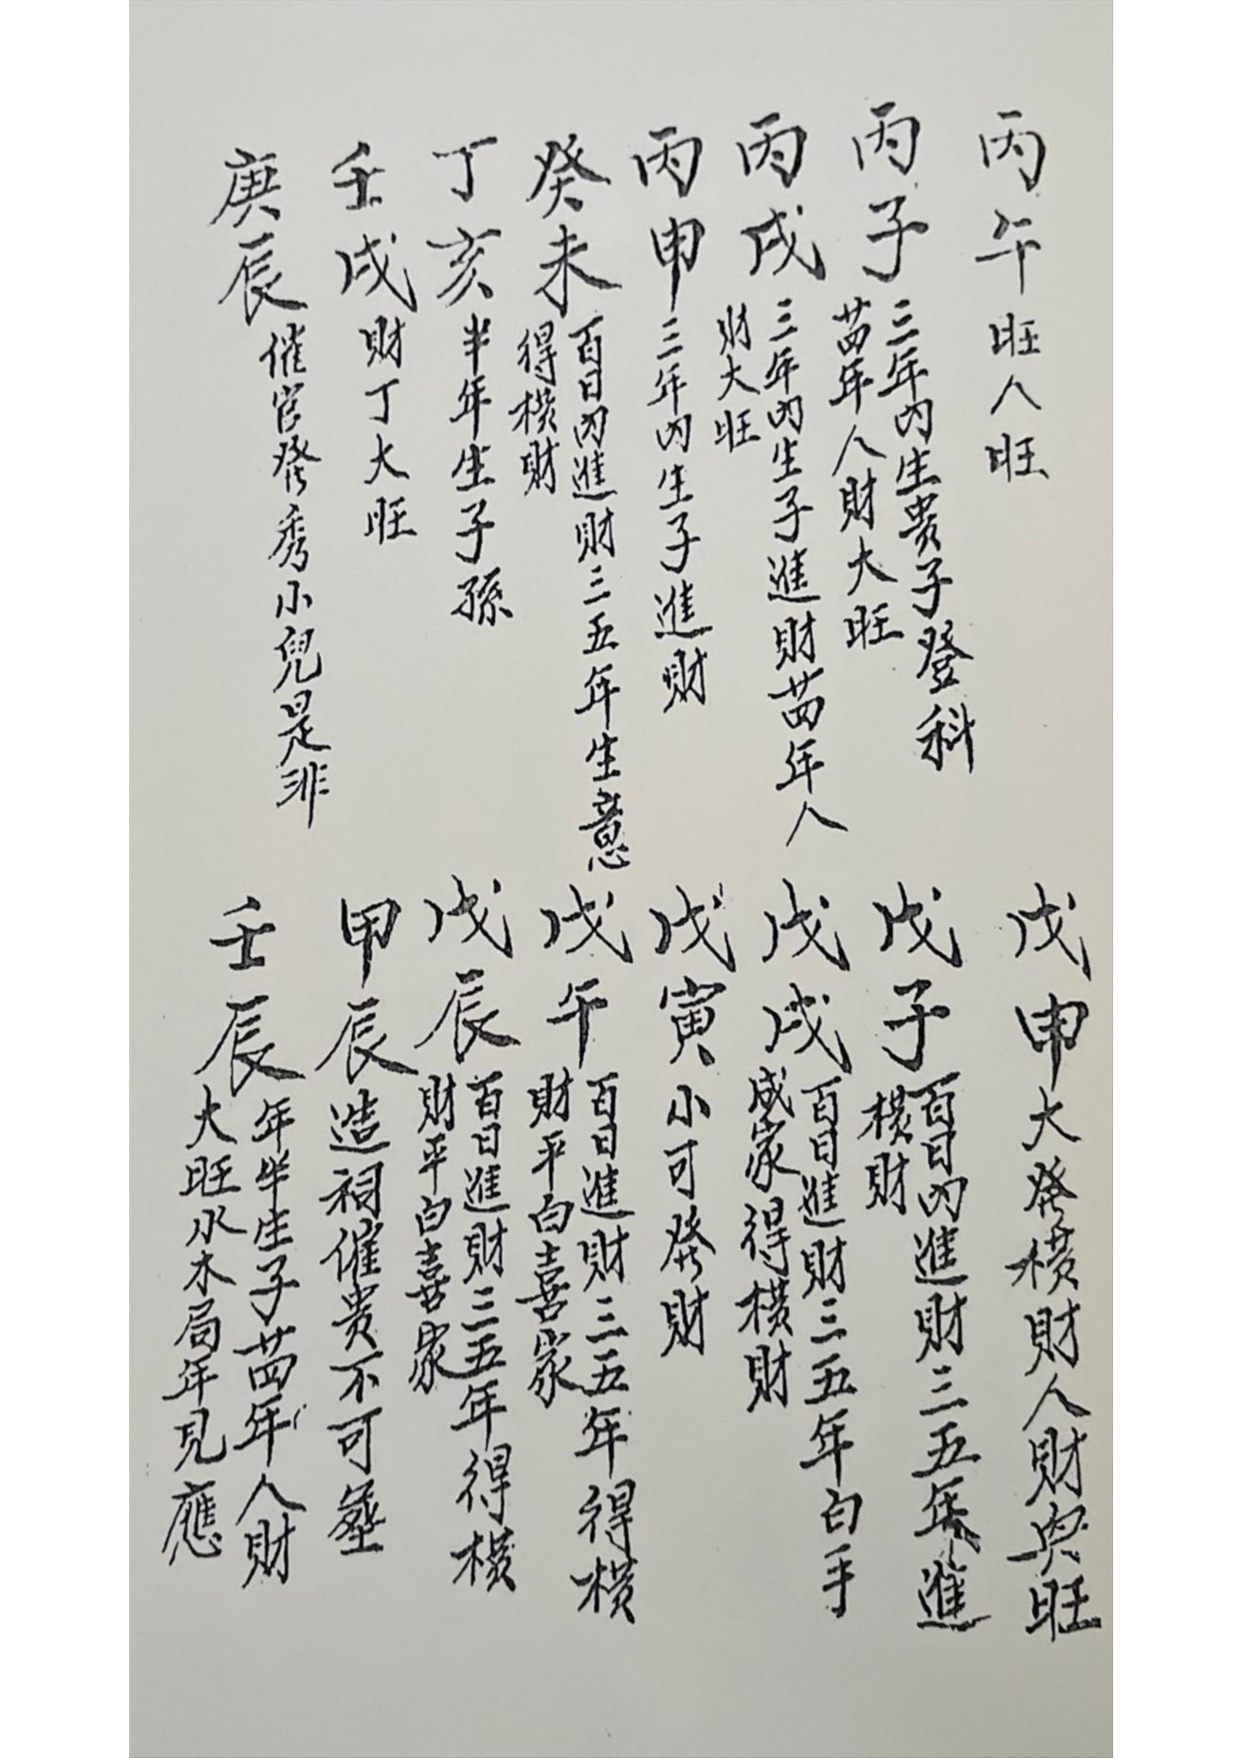 丙午旺人旺
丙子三年內生貴子登科
苗年人財大旺
丙戌三年內生子進財苗年人
財大旺
丙申三年內生子進財
癸未百日內進財三五年生意
得横財
丁亥半年生子孫
壬戌財丁大旺
庚辰催官發秀小兒是非
戊申大發横財人財與旺
戊子百日內進財三五年進
横財
戊戌百日進財三五年白手
成家得横財
戊寅小可發財
戊午百日進財三五年得横
財平白喜家
戊辰百日進財三五年得横
財平白喜家
甲辰造祠催貴不可塟
壬辰年半生子苗年人財
大旺水木局年見應